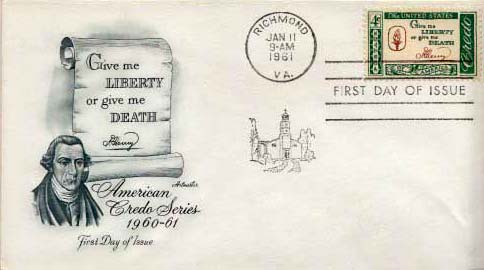 Give me
LIBERTY
or give me
DEATH
P.Henry
Artmaster
American
Credo Series
1960-61
First Day of Issue
RICHMOND
JAN 11
9-AM
1961
VA.
4¢ THE UNITED STATES
Give me
LIBERTY
or give me
DEATH
P.Henry
Credo
FIRST DAY OF ISSUE